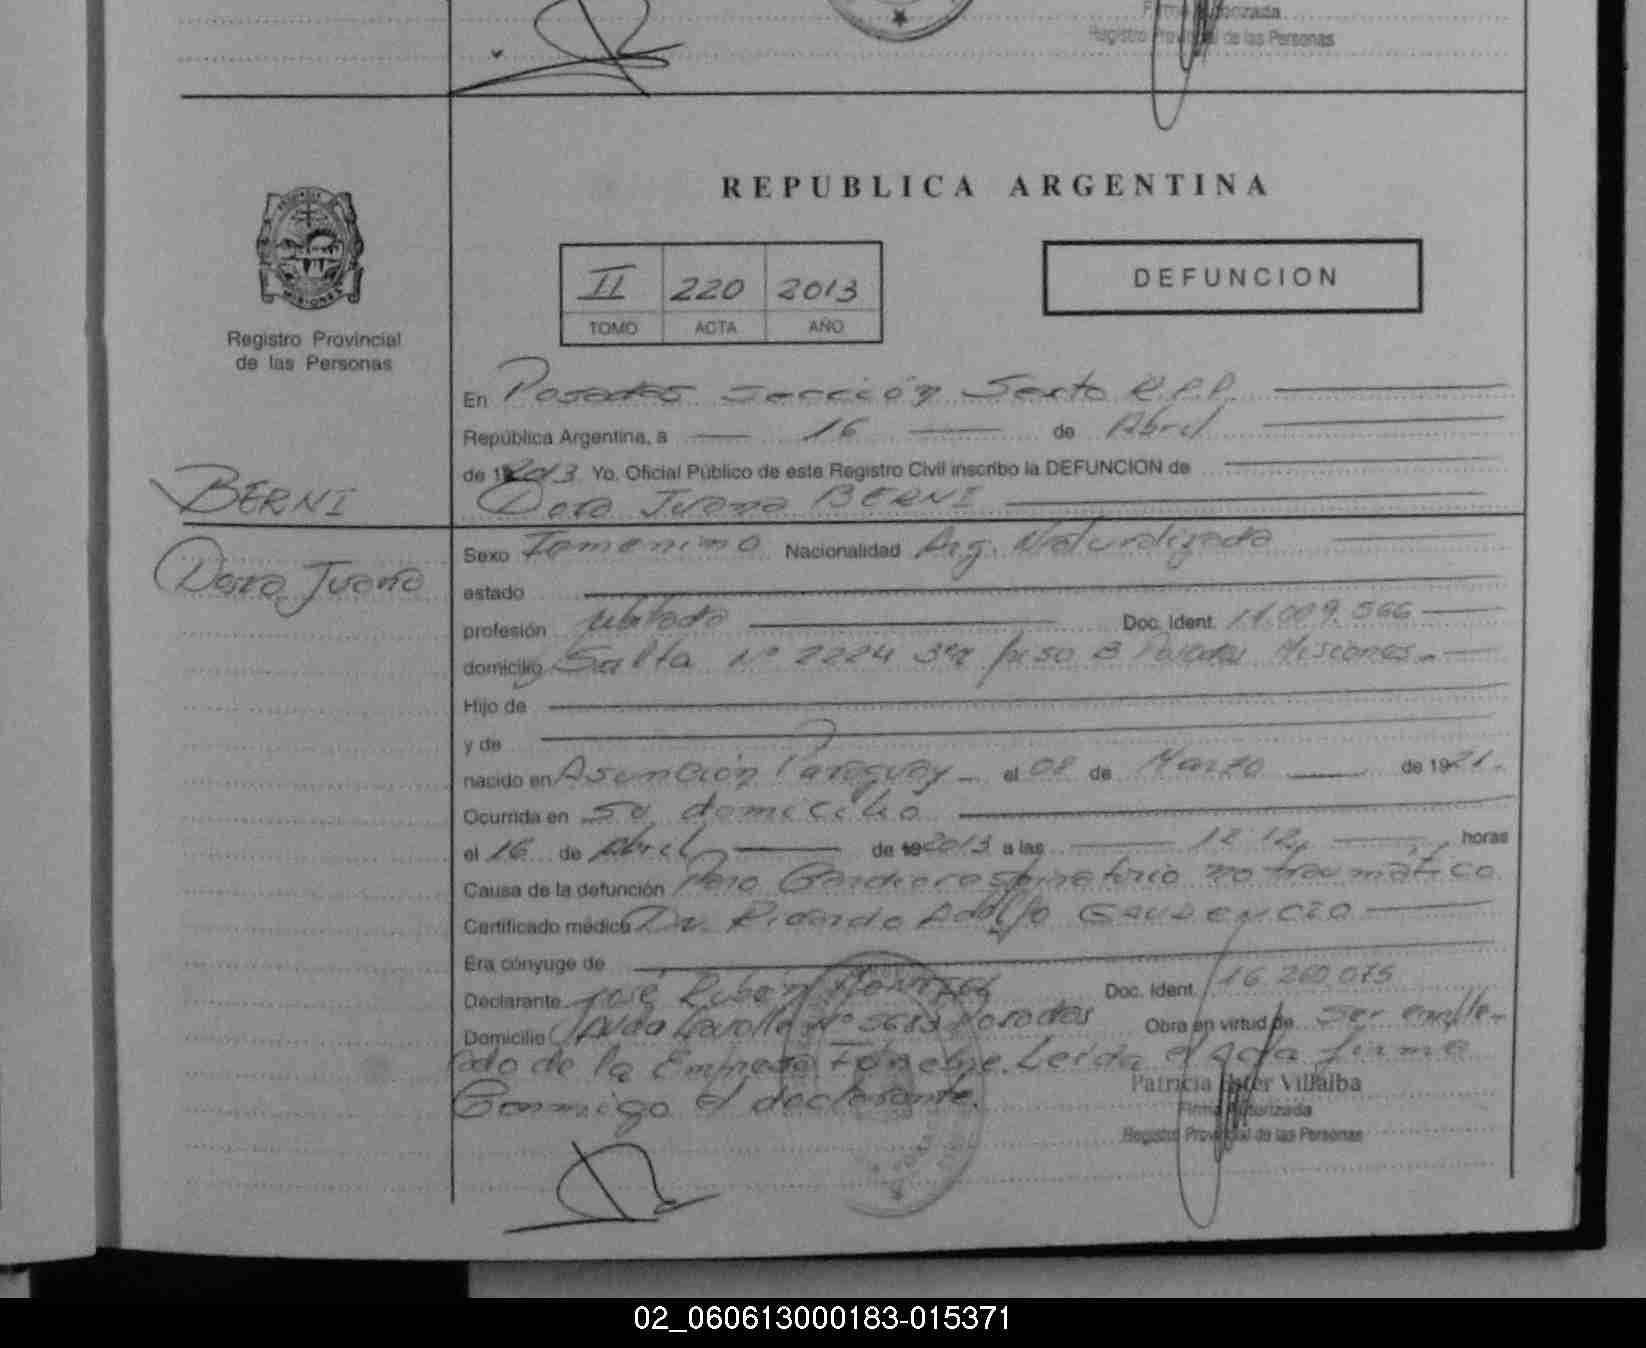 Firma Autorizada
Registro Provincial de las Personas
REPUBLICA ARGENTINA
MISIONES
Registro Provincial
de las Personas
II 220 2013
TOMO ACTA AÑO
DEFUNCION
En Posadas Sección Sexta R.P.P.
República Argentina, a 16 de Abril
de 2013 Yo, Oficial Público de este Registro Civil inscribo la DEFUNCION de
BERNI
Dora Juana BERNI
Dora Juana
Sexo Femenino Nacionalidad Arg. Naturalizada
estado
profesión Jubilada Doc. Ident. 11.009.566
domicilio Salta Nº 2224 3er piso B Posadas Misiones.-
Hijo de
y de
nacido en Asunción Paraguay el 08 de Marzo de 1921.
Ocurrida en su domicilio
el 16 de Abril de 2013 a las 12:12, horas
Causa de la defunción Paro Cardiorespiratorio no traumático
Certificado médico Dr. Ricardo Adolfo GAUDENCIO
Era cónyuge de
Declarante José Rubén Doc. Ident. 16.260.075
Domicilio Avda Lavalle Nº 5683 Posadas Obra en virtud de Ser emple-
ado de la Empresa Fúnebre. Leída el Acta firma
Patricia Ester Villalba
Conmigo el declarante.
Firma Autorizada
Registro Provincial de las Personas
02_060613000183-015371